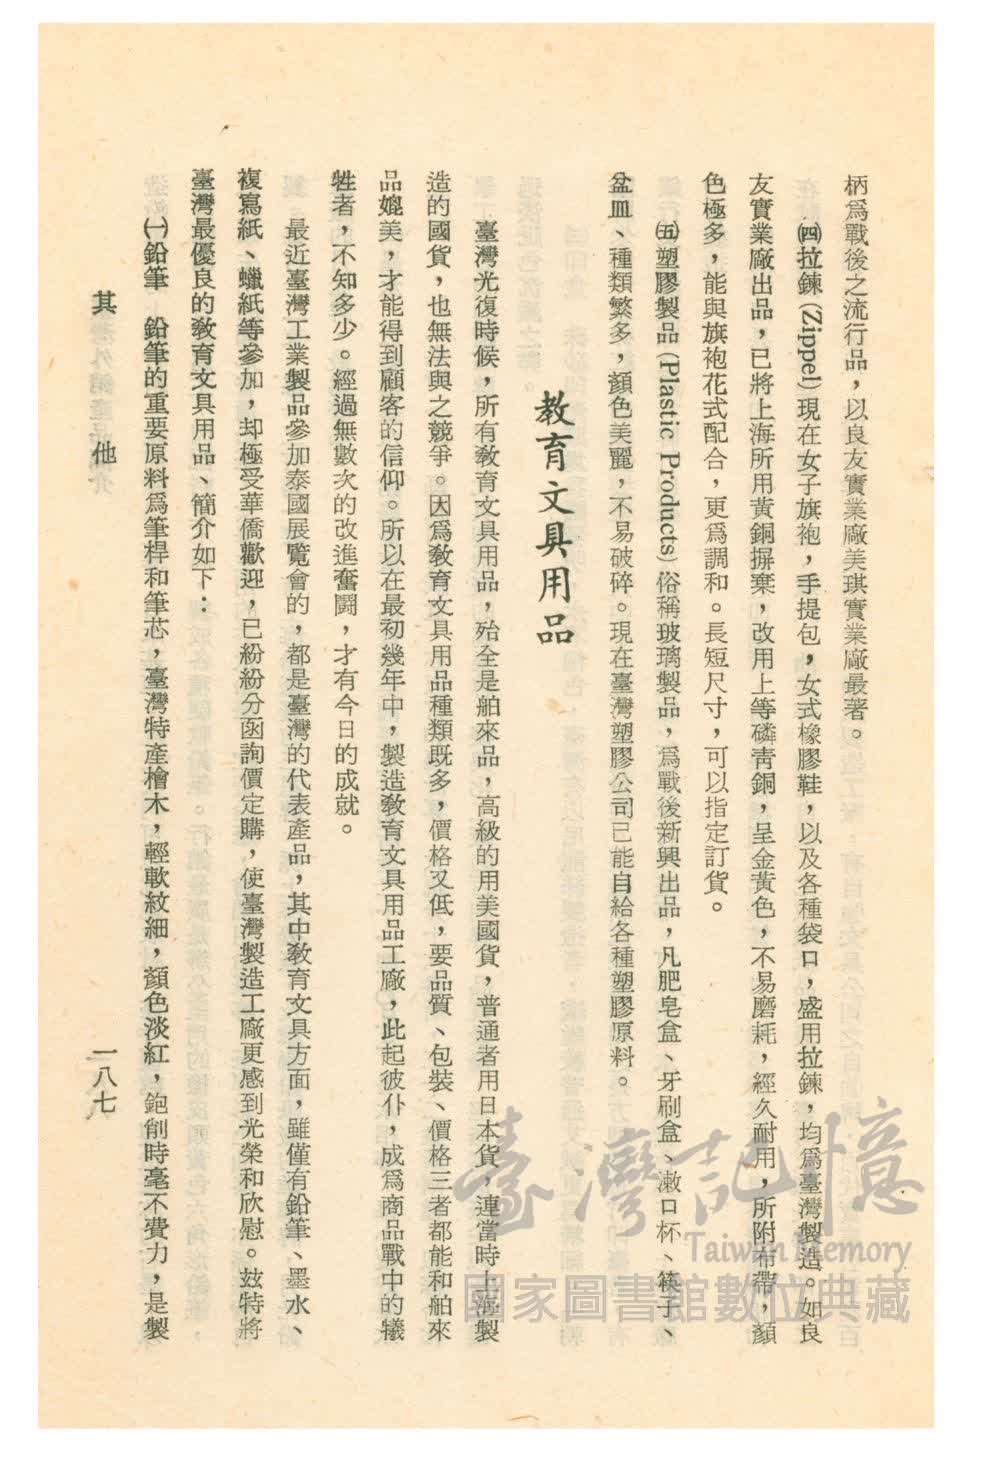 柄爲戰後之流行品，以良友實業廠美琪實業廠最著。
㈣拉鍊(Zippel)現在女子旗袍，手提包，女式橡膠鞋，以及各種袋口，盛用拉鍊，均爲臺灣製造。如良
友實業廠出品，已將上海所用黃銅摒棄，改用上等磷靑銅，呈金黃色，不易磨耗，經久耐用，所附布帶，顏
色極多，能與旗袍花式配合，更爲調和。長短尺寸，可以指定訂貨。
㈤塑膠製品(Plastic Products)俗稱玻璃製品，爲戰後新興出品，凡肥皂盒、牙刷盒、漱口杯、筷子、
盆皿、種類繁多，顏色美麗，不易破碎。現在臺灣塑膠公司已能自給各種塑膠原料。
教育文具用品
臺灣光復時候，所有教育文具用品，殆全是舶來品，高級的用美國貨，普通者用日本貨，連當時上海製
造的國貨，也無法與之競爭。因爲教育文具用品種類既多，價格又低，要品質、包裝、價格三者都能和舶來
品媲美，才能得到顧客的信仰。所以在最初幾年中，製造教育文具用品工廠，此起彼仆，成爲商品戰中的犧
牲者，不知多少。經過無數次的改進奮鬪，才有今日的成就。
最近臺灣工業製品參加泰國展覽會的，都是臺灣的代表產品，其中教育文具方面，雖僅有鉛筆、墨水、
複寫紙、蠟紙等參加，却極受華僑歡迎，已紛紛分函詢價定購，使臺灣製造工廠更感到光榮和欣慰。玆特將
臺灣最優良的教育文具用品、簡介如下：
㈠鉛筆　鉛筆的重要原料爲筆桿和筆芯，臺灣特產檜木，輕軟紋細，顏色淡紅，鉋削時毫不費力，是製
其他
一八七
臺灣記憶
Taiwan Memory
國家圖書館數位典藏